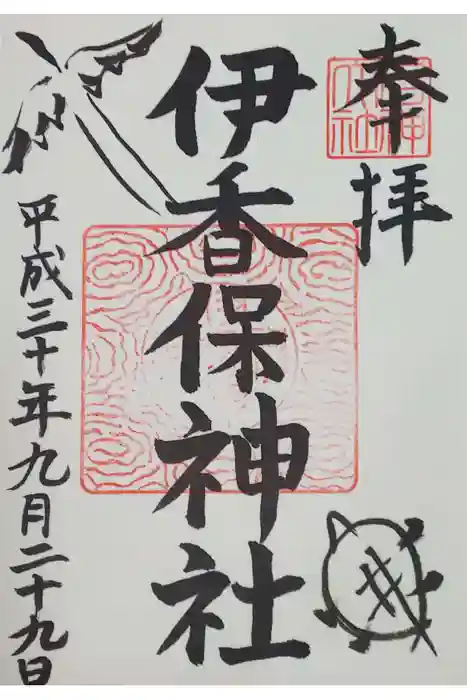 奉拝
伊香保神社
平成三十年九月二十九日